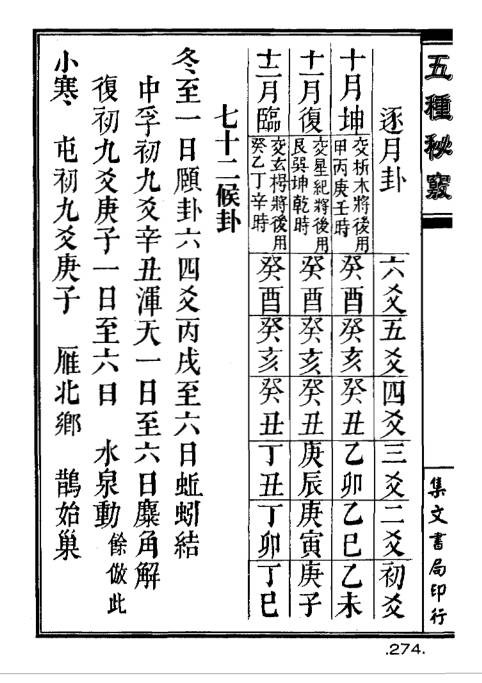 五種秘竅
集文書局印行
逐月卦 六爻 五爻 四爻 三爻 二爻 初爻
十月坤 交析木將後用 甲丙庚壬時 癸酉 癸亥 癸丑 乙卯 乙巳 乙未
十一月復 交星紀將後用 艮巽坤乾時 癸酉 癸亥 癸丑 庚辰 庚寅 庚子
十二月臨 交玄枵將後用 癸乙丁辛時 癸酉 癸亥 癸丑 丁丑 丁卯 丁巳
七十二候卦
冬至一日頤卦六四爻丙戌至六日蚯蚓結
中孚初九爻辛丑渾天一日至六日麋角解
復初九爻庚子一日至六日 水泉動 餘倣此
小寒 屯初九爻庚子 雁北鄉 鵲始巢
.274.